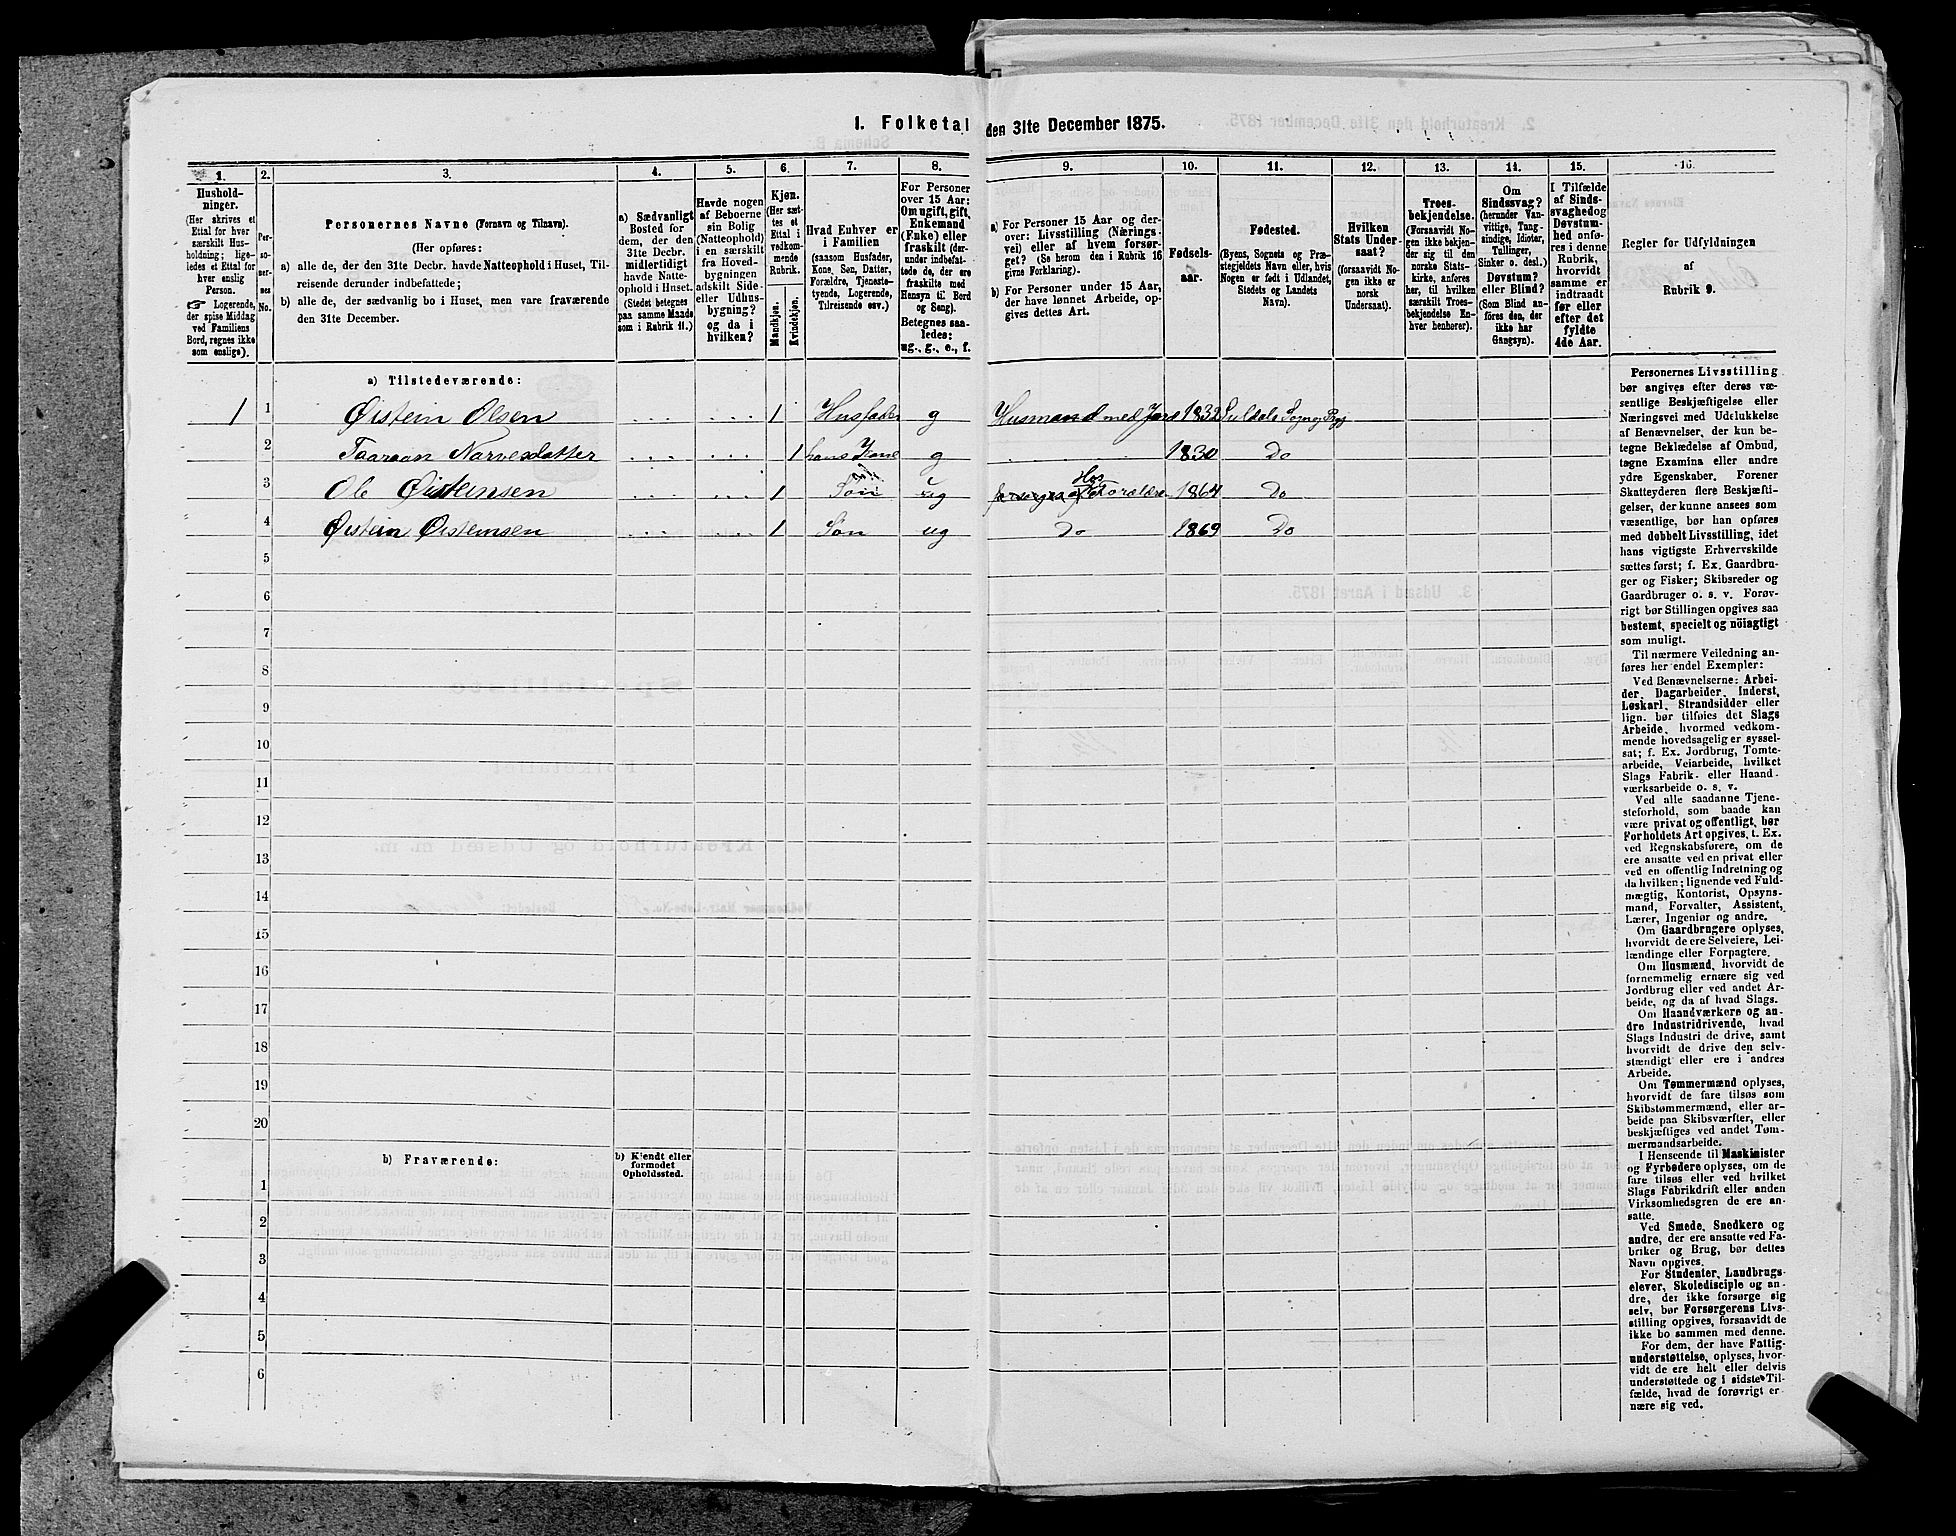 1. Folketal den 31te December 1875.
1. 2. 3. 4. 5. 6. 7. 8. 9. 10. 11. 12. 13. 14. 15. 16.
Hushold-
ninger.
(Her skrives et
Ettal for hver
særskilt Hus-
holdning; lige-
ledes et Ettal for
hver enslig
Person.
☞ Logerende,
der spise Middag
ved Familiens
Bord, regnes ikke
som enslige).
Per-
so-
ner-
nes
No.
Personernes Navne (Fornavn og Tilnavn).
(Her opføres:
a) alle de, der den 31te Decbr. havde Natteophold i Huset, Til-
reisende derunder indbefattede;
b) alle de, der sædvanlig bo i Huset, men vare fraværende
den 31te December.
a) Sædvanligt
Bosted for
dem, der den
31te Decbr.
midlertidigt
havde Natte-
ophold i Huset.
(Stedet betegnes
paa samme Maade
som i Rubrik 11.)
Havde nogen
af Beboerne
sin Bolig
(Natteophold)
i en særskilt
fra Hoved-
bygningen
adskilt Side-
eller Udhus-
bygning?
og da i
hvilken?
Kjøn.
(Her sæt-
tes et
Ettal i
vedkom-
mende
Rubrik.
Mandkjøn.
Kvindekjøn.
Hvad Enhver er
i Familien
(saasom Husfader,
Kone, Søn, Datter,
Forældre, Tjeneste-
tyende, Logerende,
Tilreisende osv.)
For Personer
over 15 Aar:
Om ugift, gift,
Enkemand
(Enke) eller
fraskilt (der-
under indbefat-
tede de, der ere
fraskilte med
Hensyn til Bord
og Seng).
Betegnes saa-
ledes:
ug., g., e., f.
a) For Personer 15 Aar og der-
over: Livsstilling (Nærings-
vei) eller af hvem forsør-
get? (Se herom den i Rubrik 16
givne Forklaring).
b) For Personer under 15 Aar,
der have lønnet Arbeide, op-
gives dettes Art.
Fødsels-
aar.
Fødested.
(Byens, Sognets og Præ-
stegjeldets Navn eller, hvis
Nogen er født i Udlandet,
Stedets og Landets
Navn).
Hvilken
Stats Under-
saat?
(forsaavidt No-
gen ikke er
norsk
Undersaat).
Troes-
bekjendelse.
(Forsaavidt No-
gen ikke bekjen-
der sig til den
norske Stats-
kirke, anføres
her, til hvilken
særskilt Troes-
bekjendelse En-
hver henhører).
Om
Sindssvag?
(herunder Van-
vittige, Tung-
sindige, Idioter,
Tullinger,
Sinker o. desl.)
Døvstum?
eller Blind?
(Som Blind an-
føres den, der
ikke har
Gangsyn).
I Tilfælde
af Sinds-
svaghed og
Døvstum-
hed anfø-
res i denne
Rubrik,
hvorvidt
samme er
indtraadt
før eller
efter det
fyldte
4de Aar.
Regler for Udfyldningen
af
Rubrik 9.
a) Tilstedeværende:
1 1 Øistein Olsen 1 Husfader g Husmand med Jord 1832 Suldals Sogn og Prgj
2 Taaraan Narvesdatter 1 hans Kone g 1830 Do
3 Ole Øisteinsen 1 Søn ug Hos Forældre 1864 Do
4 Øistein Øisteinsen 1 Søn ug Do 1869 Do
5
6
7
8
9
10
11
12
13
14
15
16
17
18
19
20
b) Fraværende:
b) Kjendt eller
formodet
Opholdssted.
1
2
3
4
5
6
Personernes Livsstilling
bør angives efter deres væ-
sentlige Beskjæftigelse eller
Næringsvei med Udelukkelse
af Benævnelser, der kun be-
tegne Beklædelse af Ombud,
tagne Examina eller andre
ydre Egenskaber. Forener
Skatteyderen flere Beskjæfti-
gelser, der kunne ansees som
væsentlige, bør han opføres
med dobbelt Livsstilling, idet
hans vigtigste Erhvervskilde
sættes først; f. Ex. Gaardbru-
ger og Fisker; Skibsreder og
Gaardbruger o. s. v. Forøv-
rigt bør Stillingen opgives saa
bestemt, specielt og nöiagtigt
som muligt.
Til nærmere Veiledning an-
føres her endel Exempler:
Ved Benævnelserne: Arbei-
der, Dagarbeider, Inderst,
Løskarl, Strandsidder eller
lign. bør tilføies det Slags
Arbeide, hvormed vedkom-
mende hovedsagelig er syssel-
sat; f. Ex. Jordbrug, Tomte-
arbeide, Veiarbeide, hvilket
Slags Fabrik- eller Haand-
værksarbeide o. s. v.
Ved alle saadanne Tjene-
steforhold, som baade kan
være privat og offentligt, bør
Forholdets Art opgives, t. Ex.
ved Regnskabsførere, om de
ere ansatte ved en privat eller
ved en offentlig Indretning og
da hvilken; lignende ved Fuld-
mægtig, Kontorist, Opsyns-
mand, Forvalter, Assistent,
Lærer, Ingeniør og andre.
Om Gaardbrugere oplyses,
hvorvidt de ere Selveiere, Lei-
lændinge eller Forpagtere.
Om Husmænd, hvorvidt de
fornemmelig ernære sig ved
Jordbrug eller ved andet Ar-
beide, og da af hvad Slags.
Om Haandværkere og an-
dre Industridrivende, hvad
Slags Industri de drive, samt
hvorvidt de drive den selv-
stændigt eller ere i andres
Arbeide.
Om Tømmermænd oplyses,
hvorvidt de fare tilsøs som
Skibstømmermænd, eller ar-
beide paa Skibsværfter, eller
beskjæftiges ved andet Tøm-
mermandsarbeide.
I Henseende til Maskinister
og Fyrbødere oplyses, om de
fare tilsøs eller ved hvilket
Slags Fabrikdrift eller anden
Virksomhedsgren de ere an-
satte.
Ved Smede, Snedkere og
andre, der ere ansatte ved Fa-
briker og Brug, bør dettes
Navn opgives.
For Studenter, Landbrugs-
elever, Skoledisciple og an-
dre, der ikke forsørge sig
selv, bør Forsørgerens Livs-
stilling opgives, forsaavidt de
ikke bo sammen med denne.
For dem, der have Fattig-
understøttelse, oplyses, hvor-
vidt de ere helt eller delvis
understøttede og i sidste Til-
fælde, hvad de forøvrigt er-
nære sig ved.